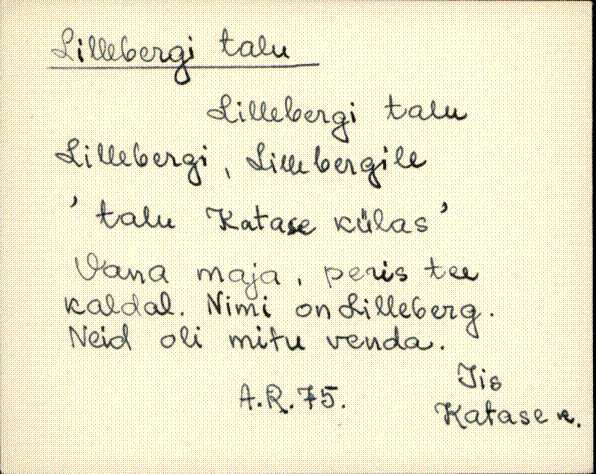 Lillebergi talu
Lillebergi talu
Lillebergi, Lillebergile
'talu Katase külas'
Vana maja, peris tee
kaldal. Nimi on Lilleberg.
Neid oli mitu venda.
Iis
A.R.75.
Katase k.